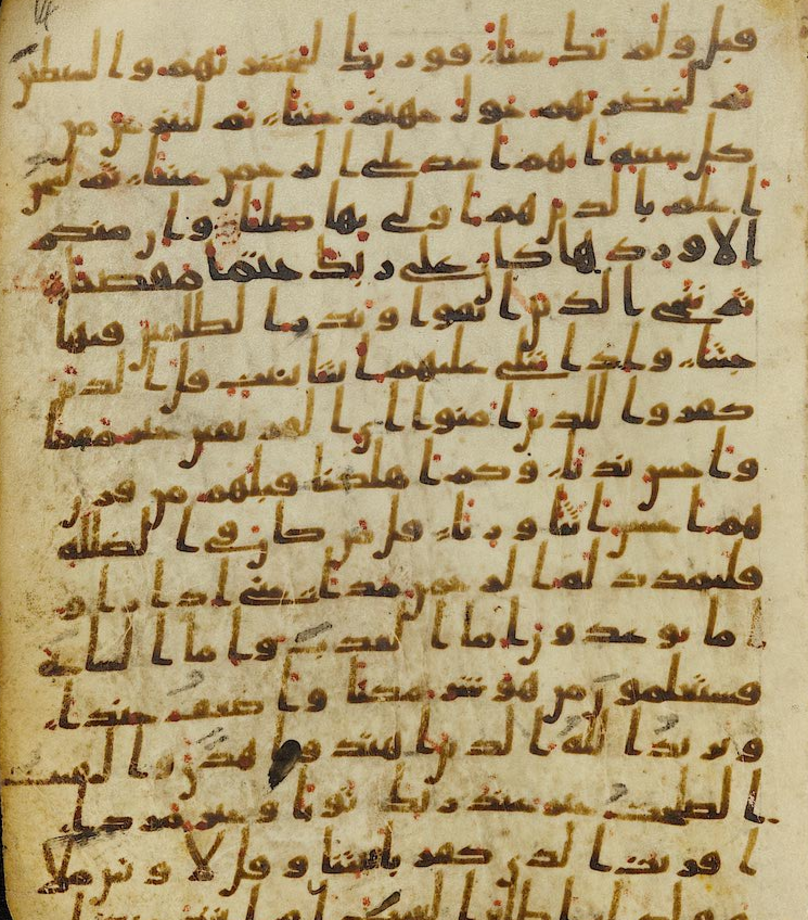 قبل ولم يك شيا فوربك لنحشرنهم والشيطين
ثم لنحضرنهم حول جهنم جثيا ثم لننزعن من
كل شيعة ايهم اشد على الرحمن عتيا ثم لنحن
اعلم بالذين هم اولى بها صليا وان منكم
الا واردها كان على ربك حتما مقضيا
ثم ننجي الذين اتقوا ونذر الظلمين فيها
جثيا واذا تتلى عليهم ايتنا بينت قال الذين
كفروا للذين امنوا اي الفريقين خير مقاما
واحسن نديا وكم اهلكنا قبلهم من قرن
هم احسن اثثا وريا قل من كان في الضللة
فليمدد له الرحمن مدا حتى اذا راوا
ما يوعدون اما العذب واما الساعة
فسيعلمون من هو شر مكنا واضعف جندا
ويزيد الله الذين اهتدوا هدى والبقيت
الصلحت خير عند ربك ثوبا وخير مردا
افريت الذي كفر بايتنا وقل لاوتين مالا